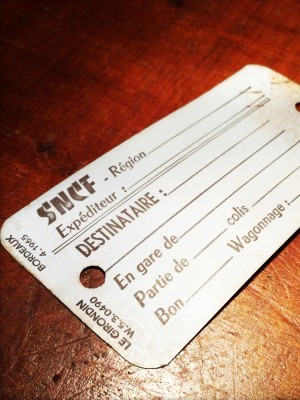 SNCF - Région
Expéditeur :
DESTINATAIRE :
En gare de
Partie de colis
Bon Wagonnage :
BORDEAUX
4.1965
LE GIRONDIN
W.5.3.0490